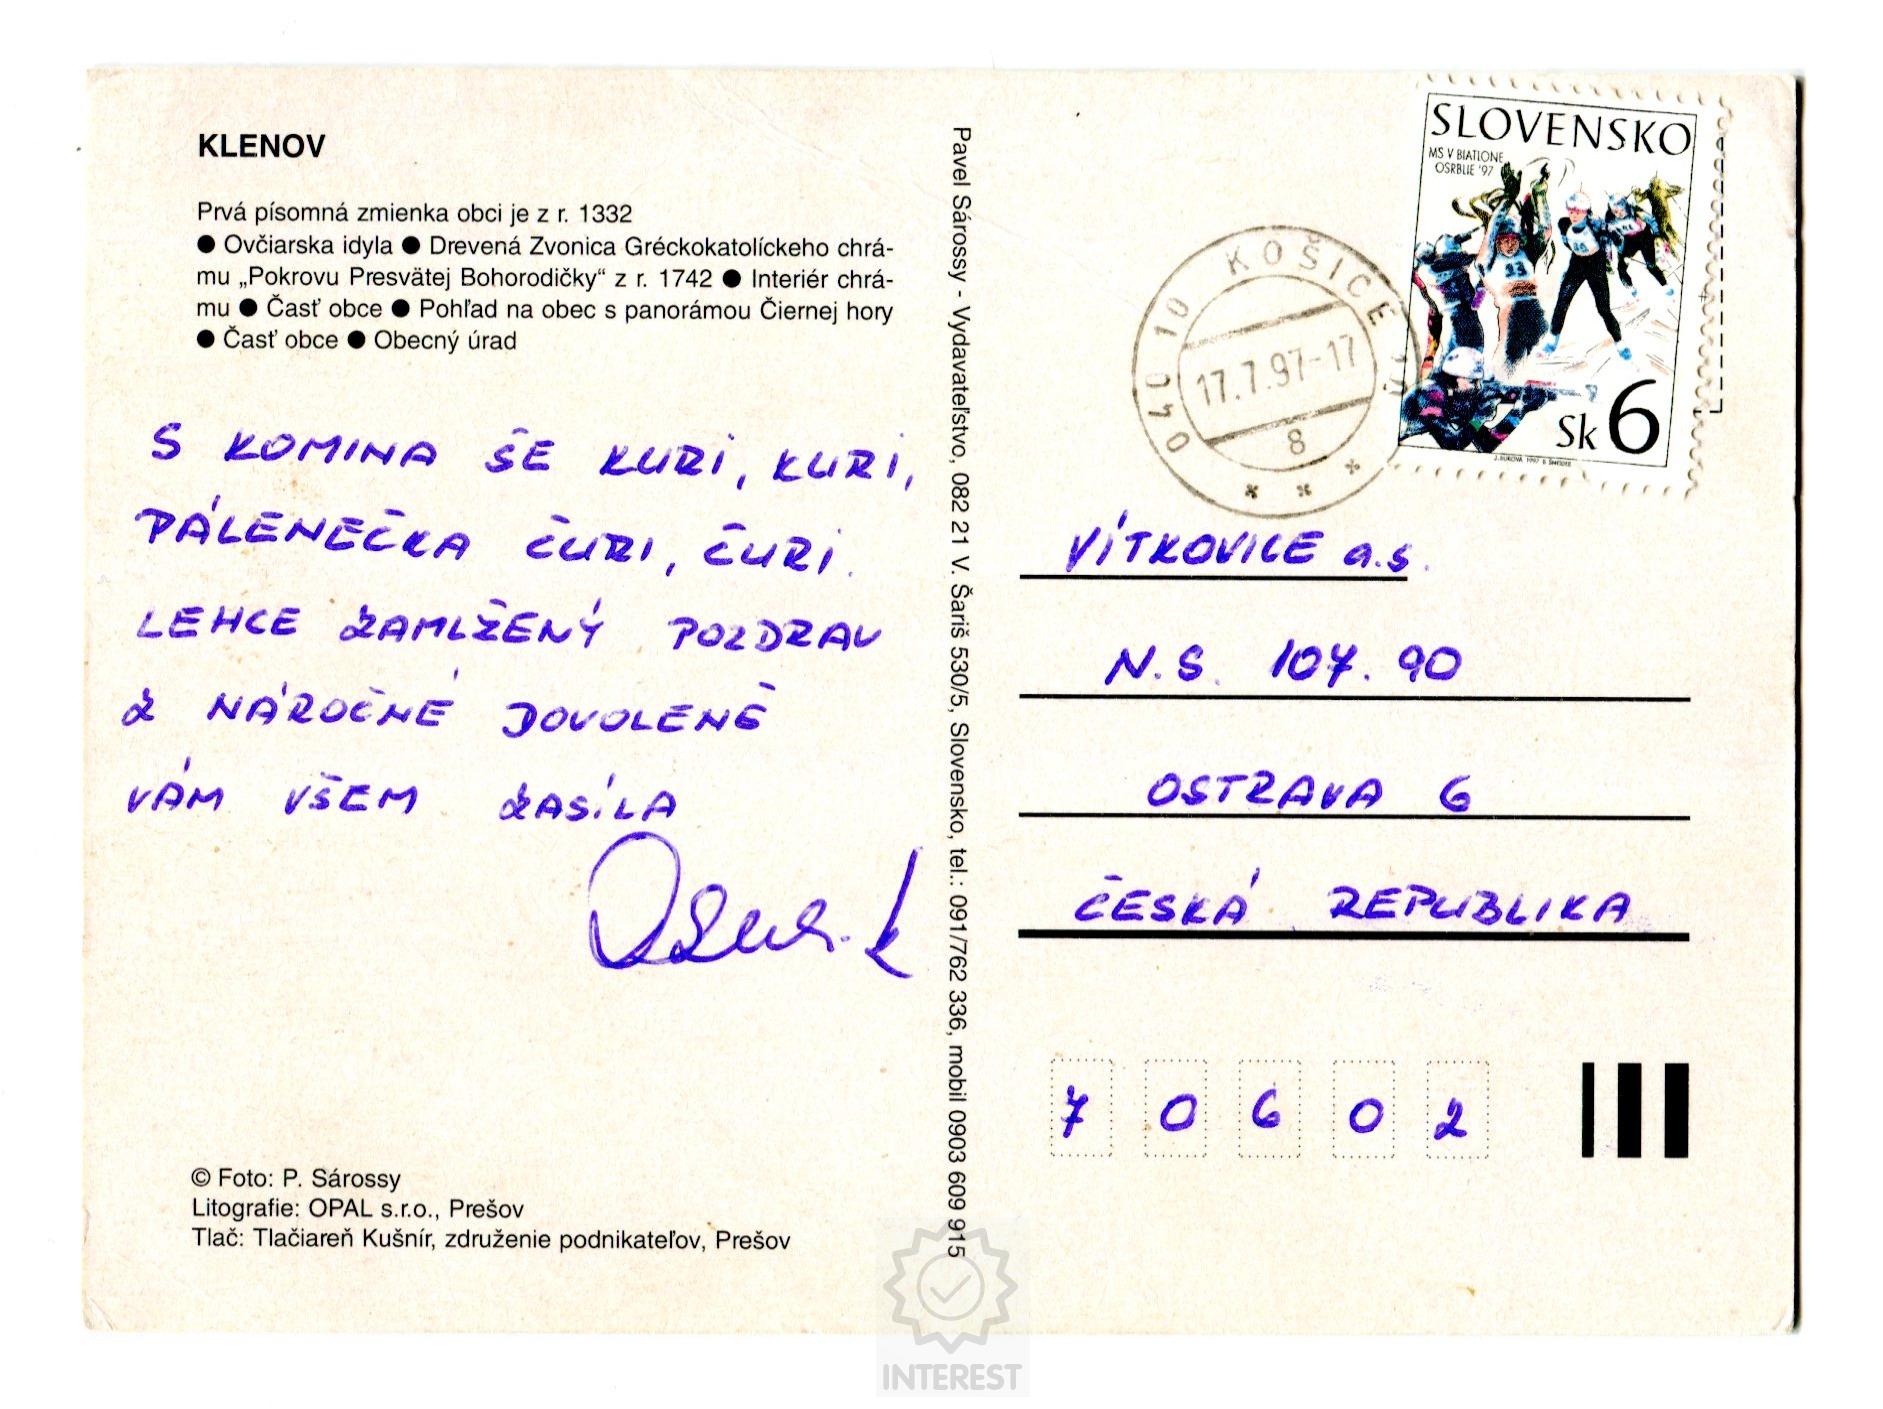 KLENOV
Prvá písomná zmienka obci je z r. 1332
● Ovčiarska idyla ● Drevená Zvonica Gréckokatolíckeho chrá-
mu „Pokrovu Presvätej Bohorodičky“ z r. 1742 ● Interiér chrá-
mu ● Časť obce ● Pohľad na obec s panorámou Čiernej hory
● Časť obce ● Obecný úrad
S KOMINA ŠE KURI, KURI,
PÁLENEČKA ČURI, ČURI.
LEHCE ZAMLŽENÝ POZDRAV
Z NÁROČNÉ DOVOLENÉ
VÁM VŠEM ZASÍLÁ
© Foto: P. Sárossy
Litografie: OPAL s.r.o., Prešov
Tlač: Tlačiareň Kušnír, združenie podnikateľov, Prešov
Pavel Sárossy - Vydavateľstvo, 082 21 V. Šariš 530/5, Slovensko, tel.: 091/762 336, mobil 0903 609 915
040 10 KOŠICE
17.7.97-17
8
SLOVENSKO
MS V BIATLONE
OSRBLIE '97
Sk 6
VÍTKOVICE a.s.
N.S. 107.90
OSTRAVA 6
ČESKÁ REPUBLIKA
70602
INTEREST